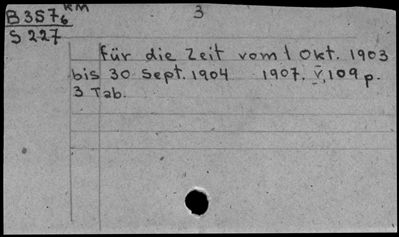 B357₆ KM 3
S 227
für die Zeit vom 1 Okt. 1903
bis 30 Sept. 1904 1907. V, 109 p.
3 Tab.